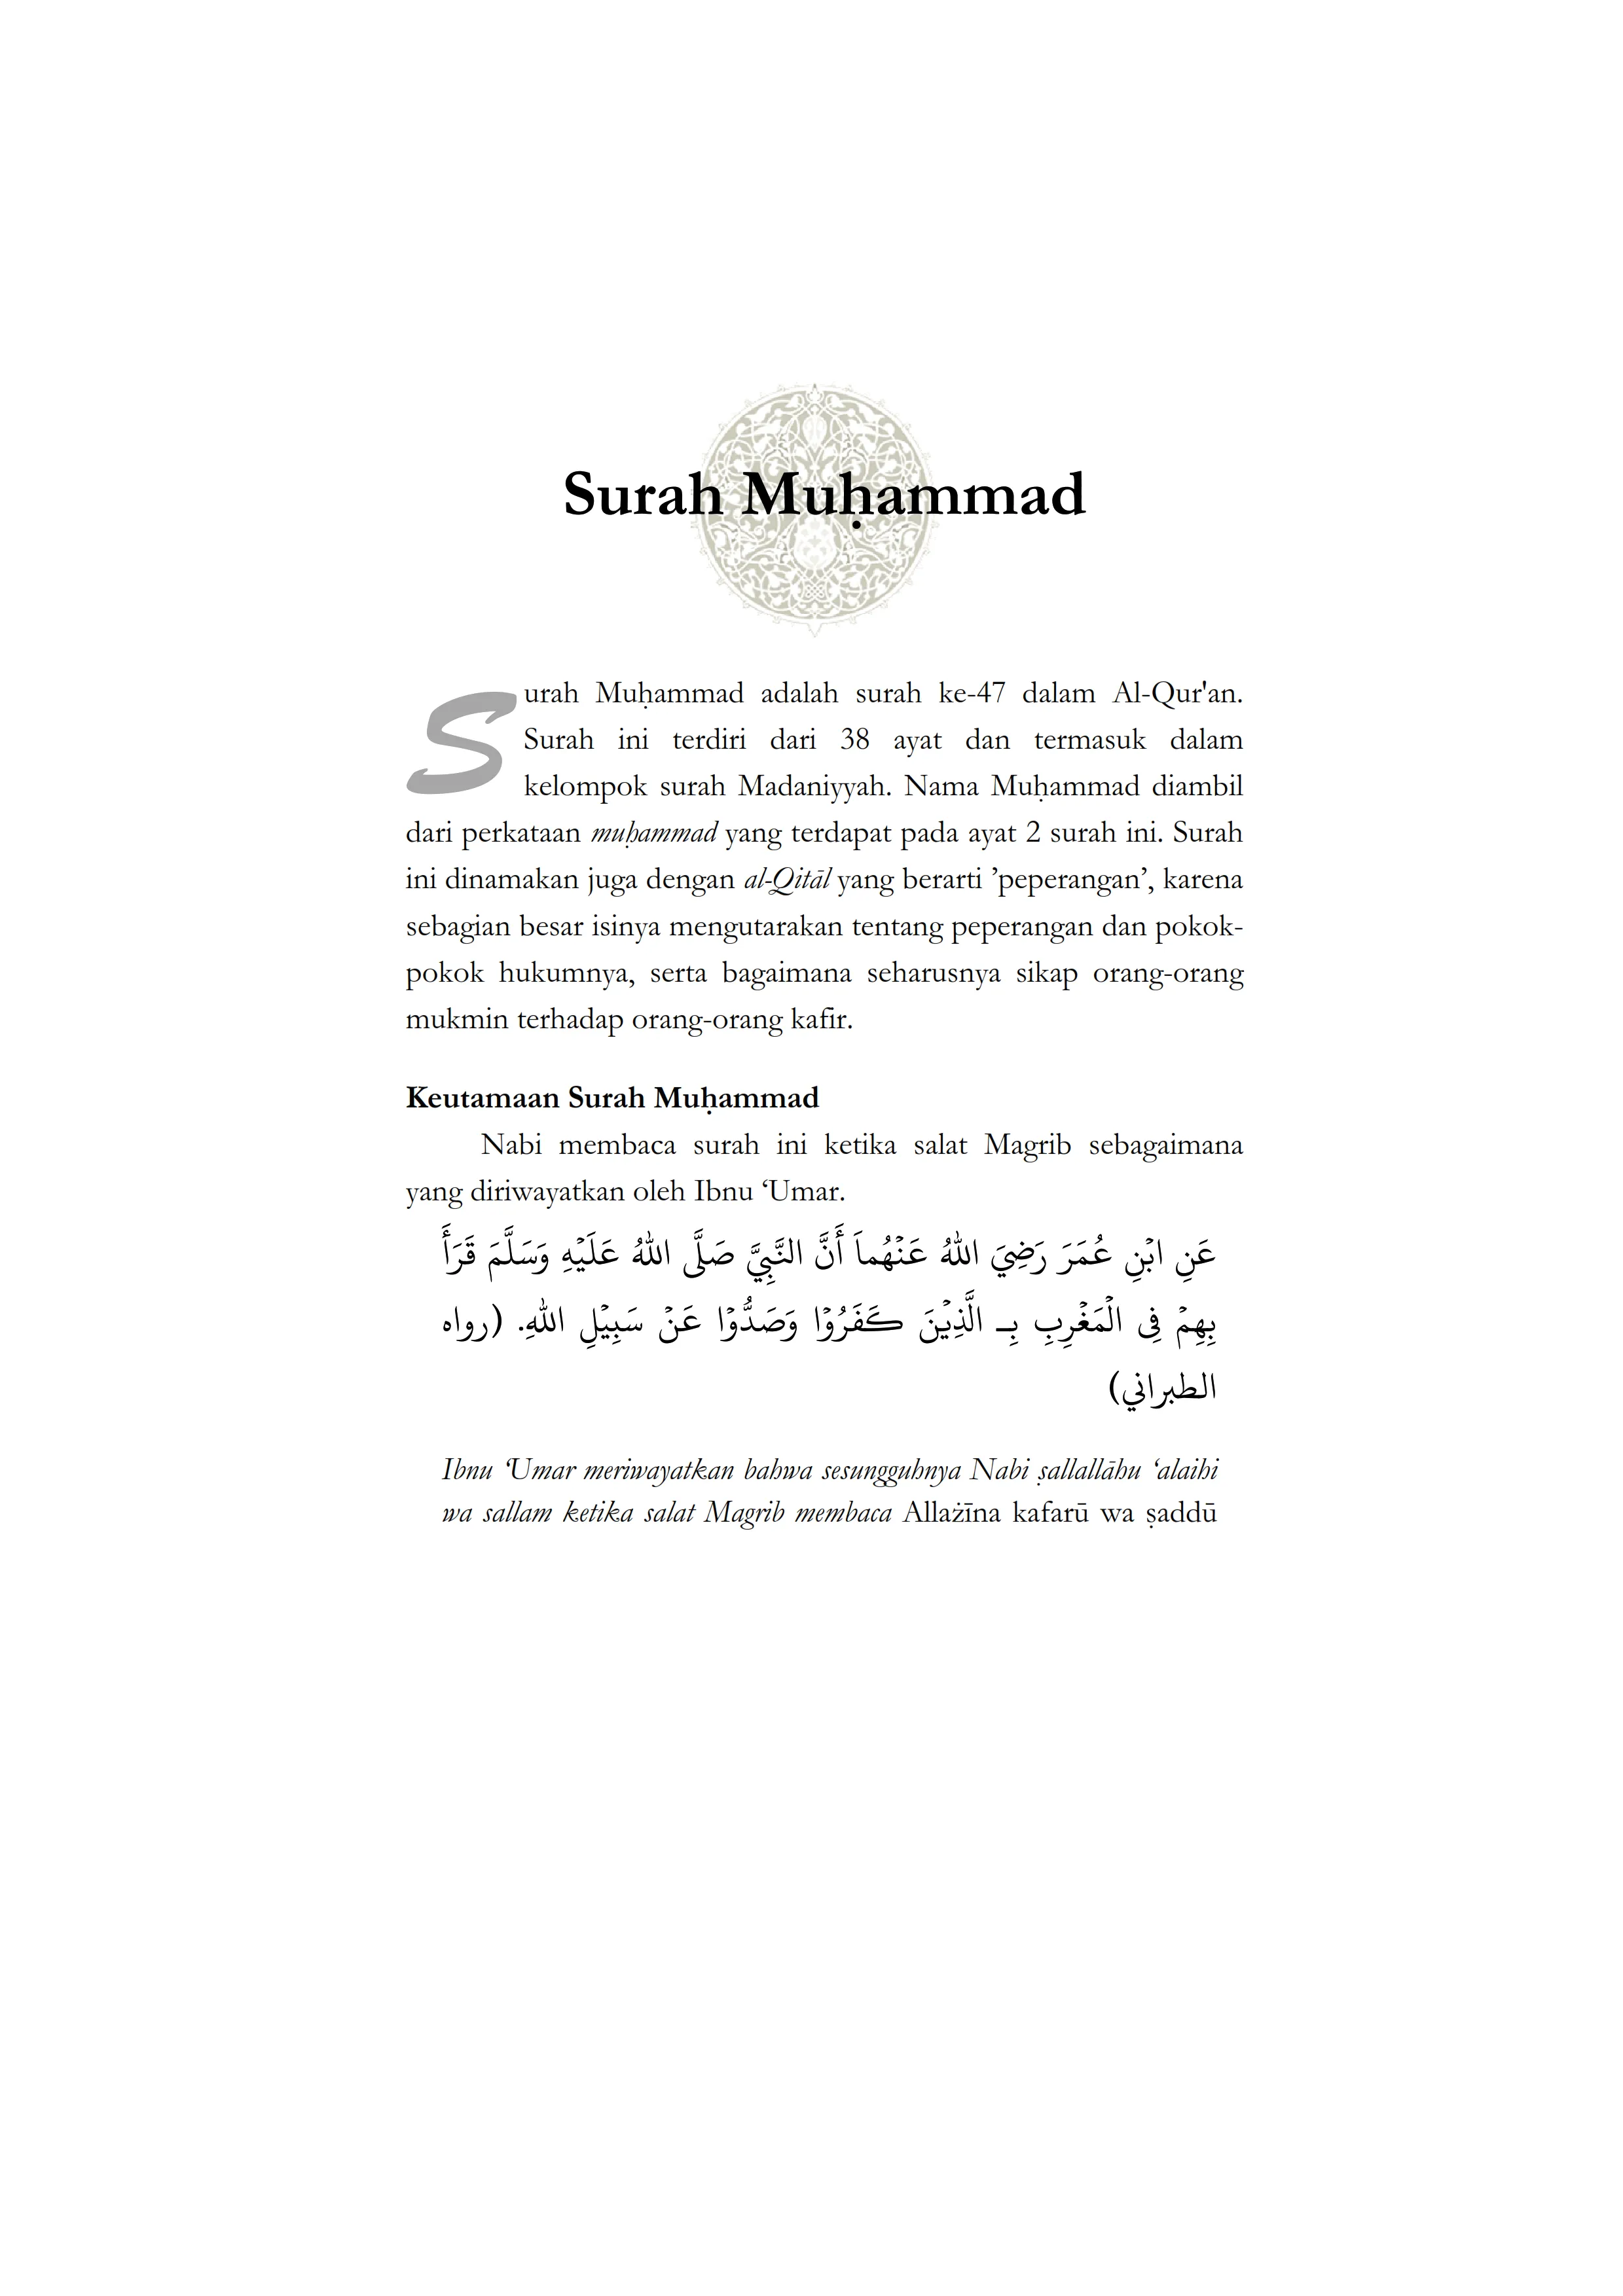 Surah Muḥammad
Surah Muḥammad adalah surah ke-47 dalam Al-Qur'an.
Surah ini terdiri dari 38 ayat dan termasuk dalam
kelompok surah Madaniyyah. Nama Muḥammad diambil
dari perkataan muḥammad yang terdapat pada ayat 2 surah ini. Surah
ini dinamakan juga dengan al-Qitāl yang berarti ’peperangan’, karena
sebagian besar isinya mengutarakan tentang peperangan dan pokok-
pokok hukumnya, serta bagaimana seharusnya sikap orang-orang
mukmin terhadap orang-orang kafir.
Keutamaan Surah Muḥammad
Nabi membaca surah ini ketika salat Magrib sebagaimana
yang diriwayatkan oleh Ibnu ‘Umar.
عَنِ ابْنِ عُمَرَ رَضِيَ اللهُ عَنْهُماَ أَنَّ النَّبِيَّ صَلَّى اللهُ عَلَيْهِ وَسَلَّمَ قَرَأَ
بِهِمْ فِى الْمَغْرِبِ بِـ الَّذِيْنَ كَفَرُوْا وَصَدُّوْا عَنْ سَبِيْلِ اللهِ. (رواه
الطبراني)
Ibnu ‘Umar meriwayatkan bahwa sesungguhnya Nabi ṣallallāhu ‘alaihi
wa sallam ketika salat Magrib membaca Allażīna kafarū wa ṣaddū